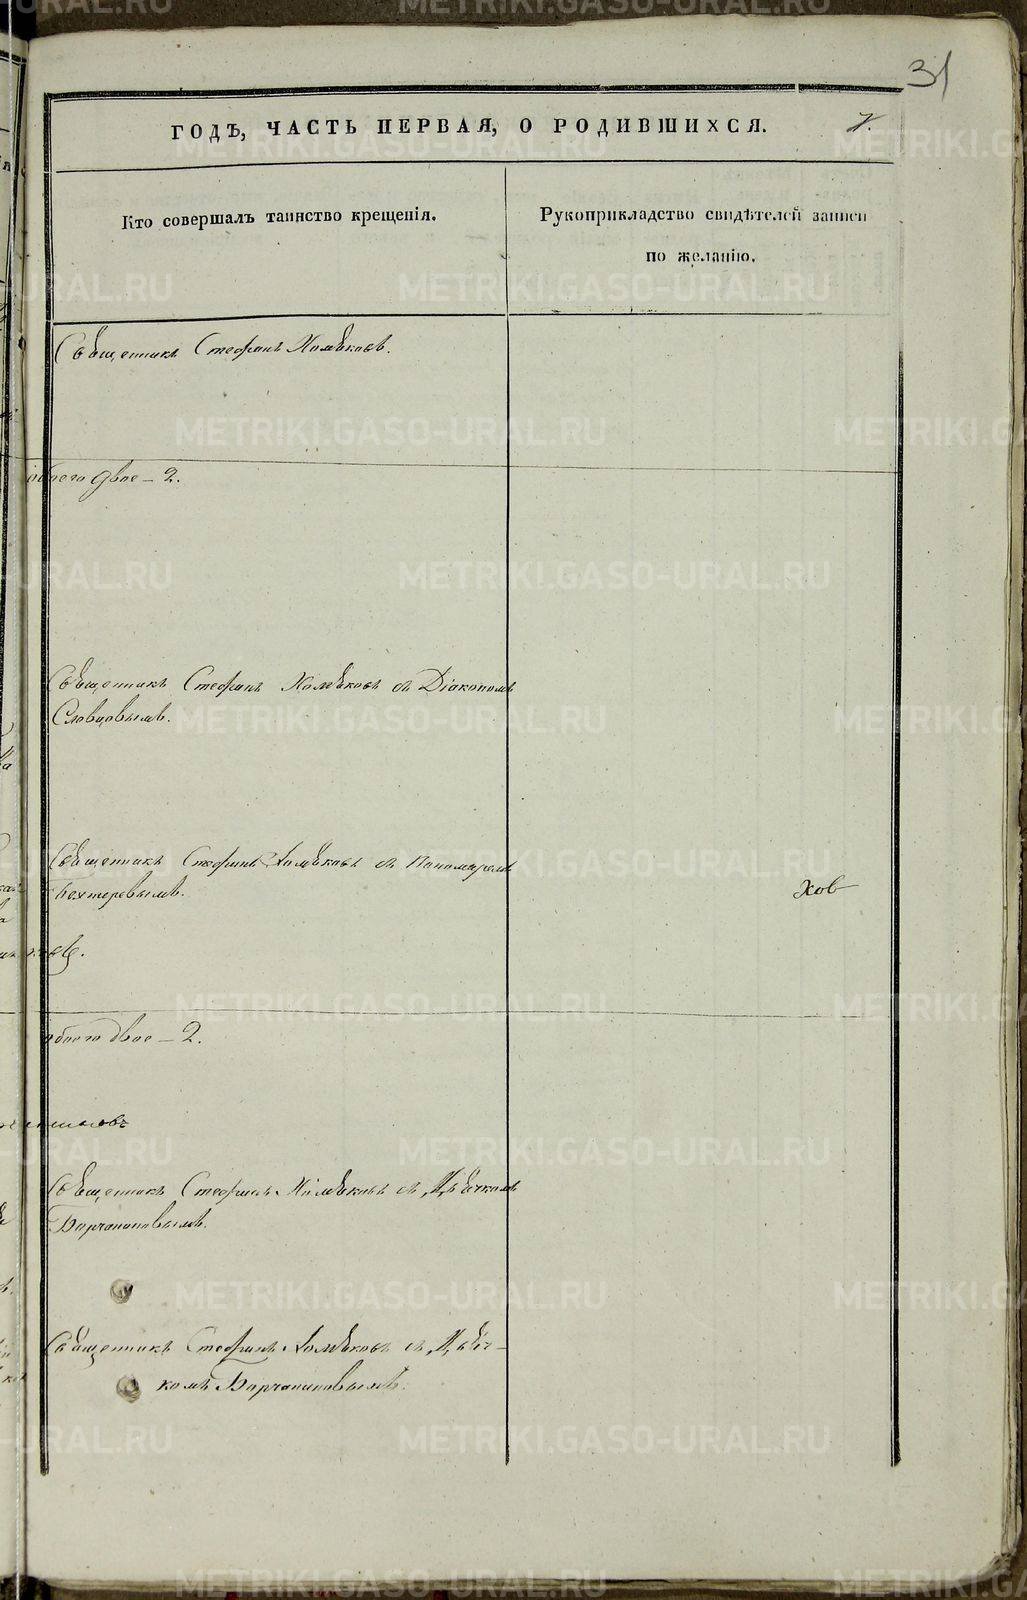 31
ГОДЪ, ЧАСТЬ ПЕРВАЯ, О РОДИВШИХСЯ.
7.
Кто совершалъ таинство крещенія.
Рукоприкладство свидѣтелей записи
по желанію.
Священникъ Стефанъ Хомяковъ.
обоего двое – 2.
Священникъ Стефанъ Хомяковъ съ Діакономъ
Словцовымъ.
Священникъ Стефанъ Хомяковъ съ Пономаремъ
Бехтеревымъ.
хов
обоего двое – 2.
Священникъ Стефанъ Хомяковъ съ Дьячкомъ
Священникъ Стефанъ Хомяковъ съ Дьяч-
комъ
METRIKI.GASO-URAL.RU